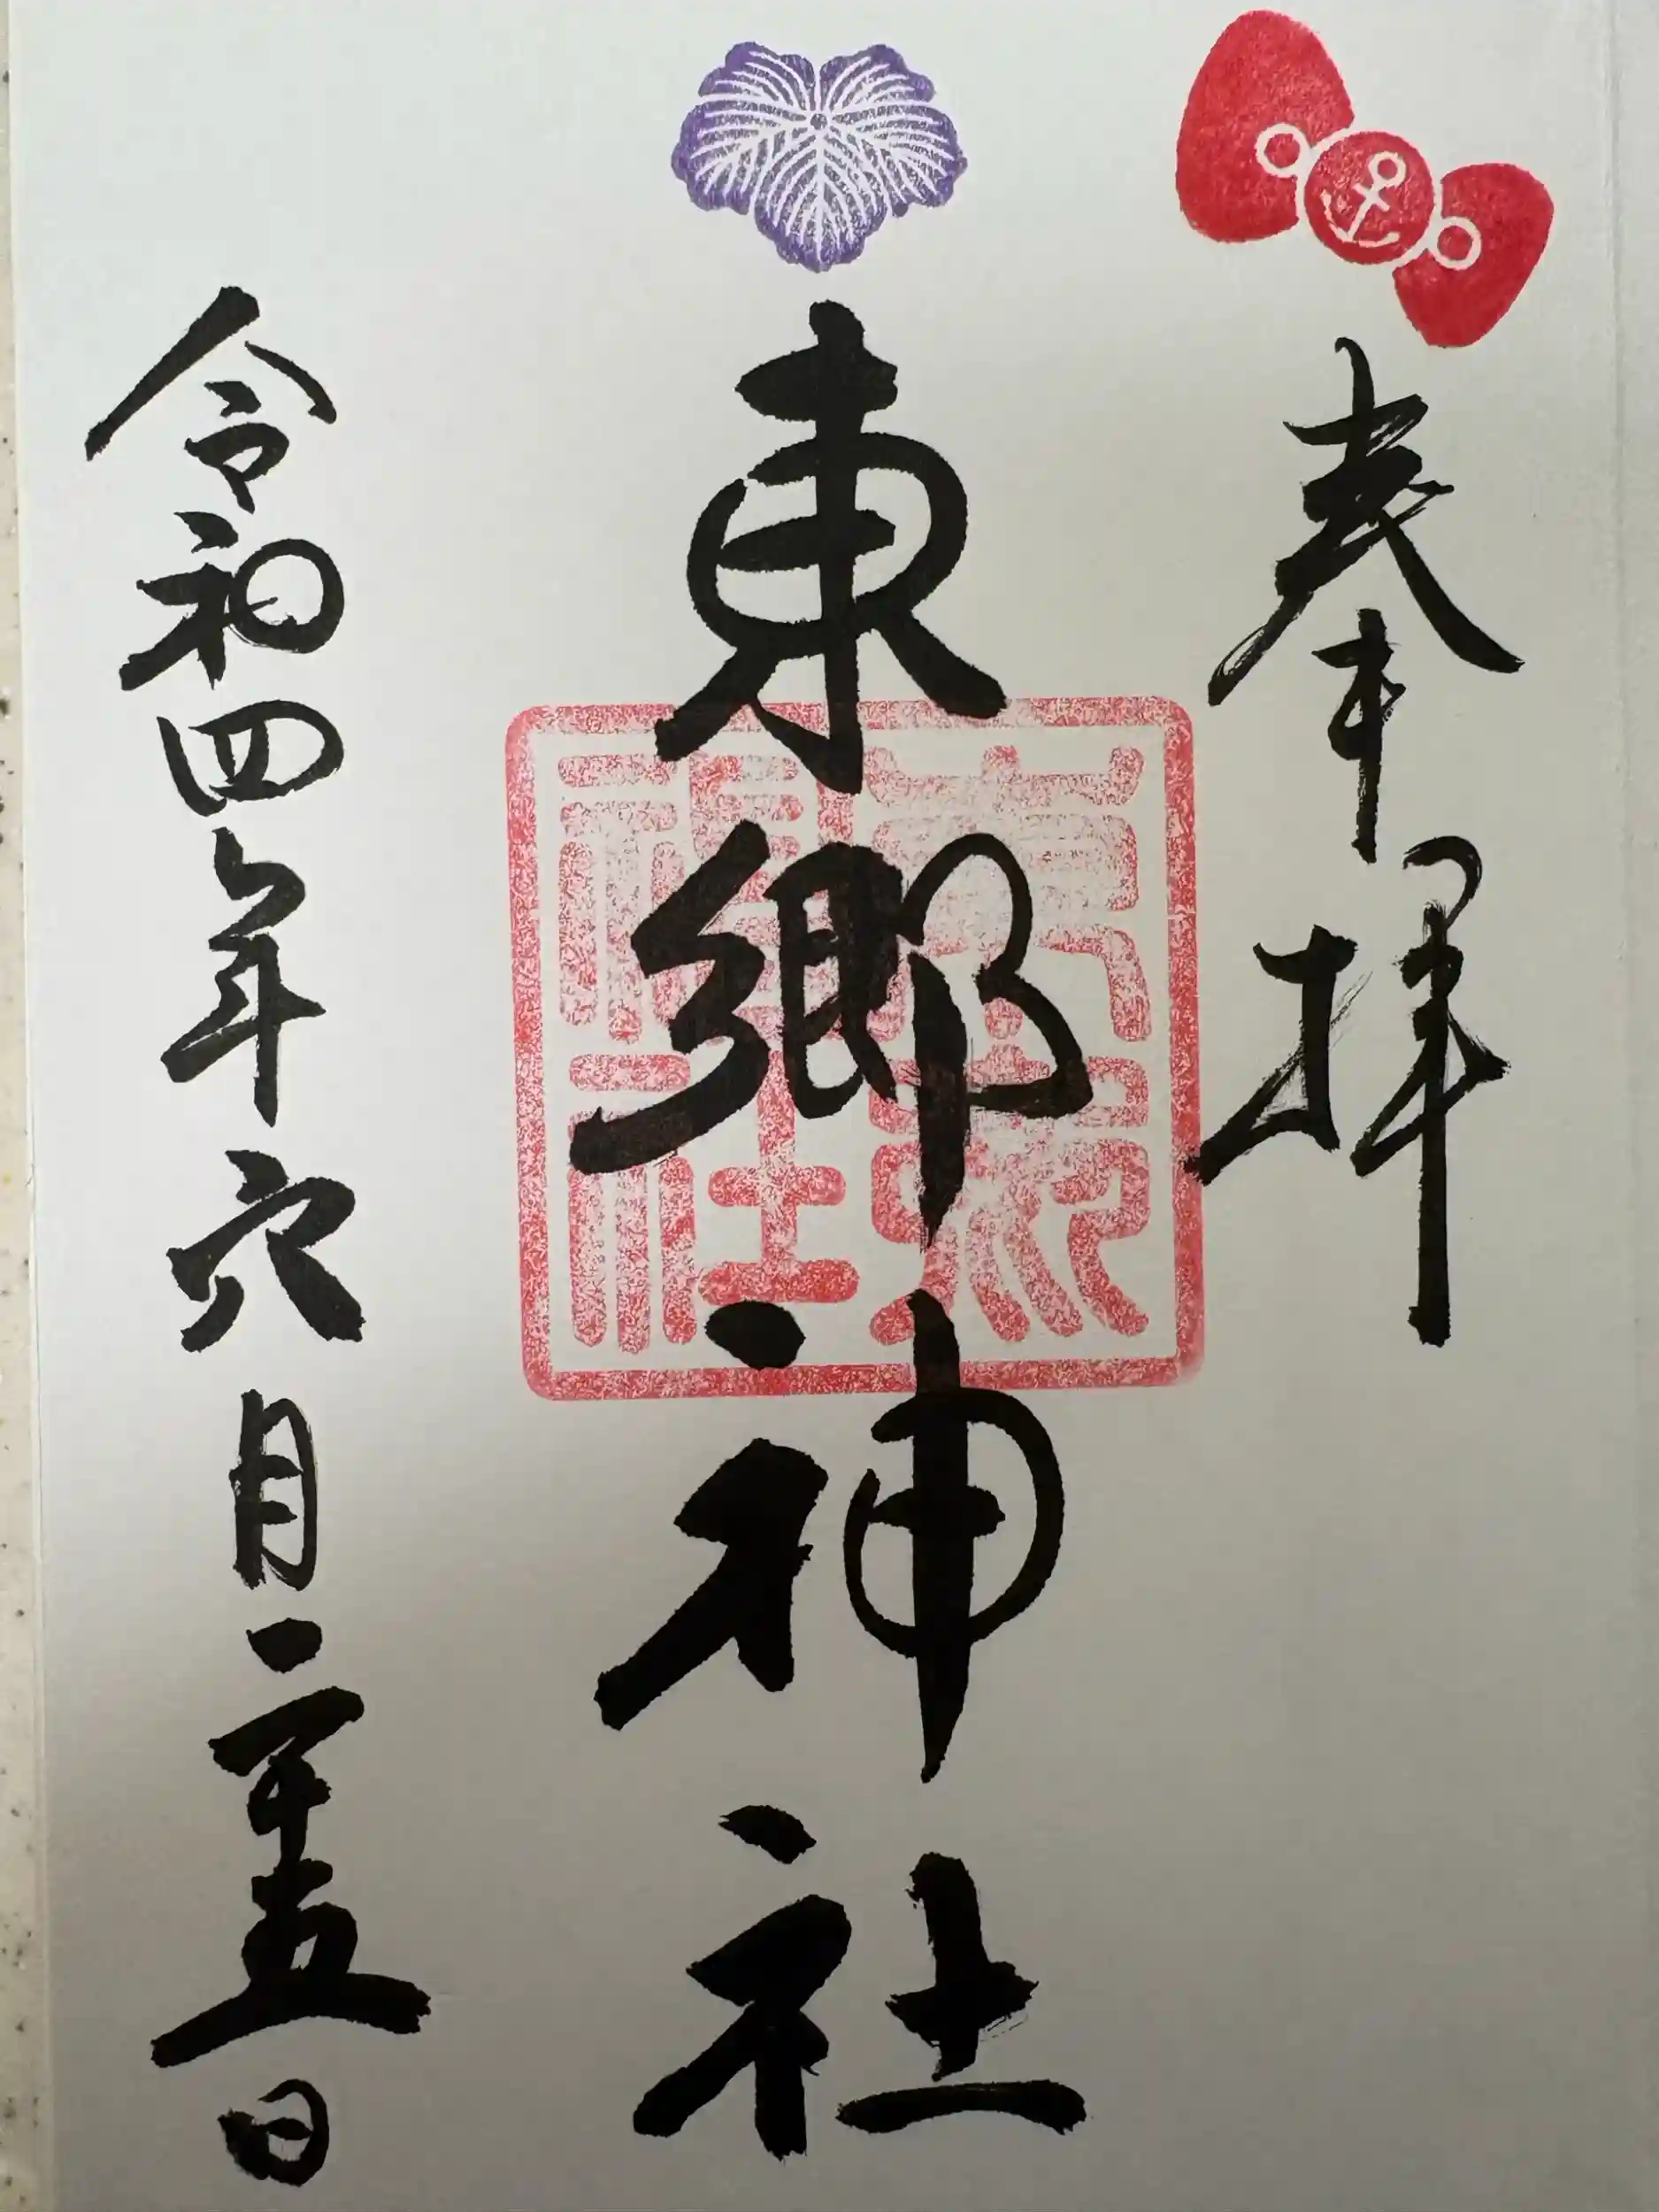 奉拝
東郷神社
令和四年六月二十五日